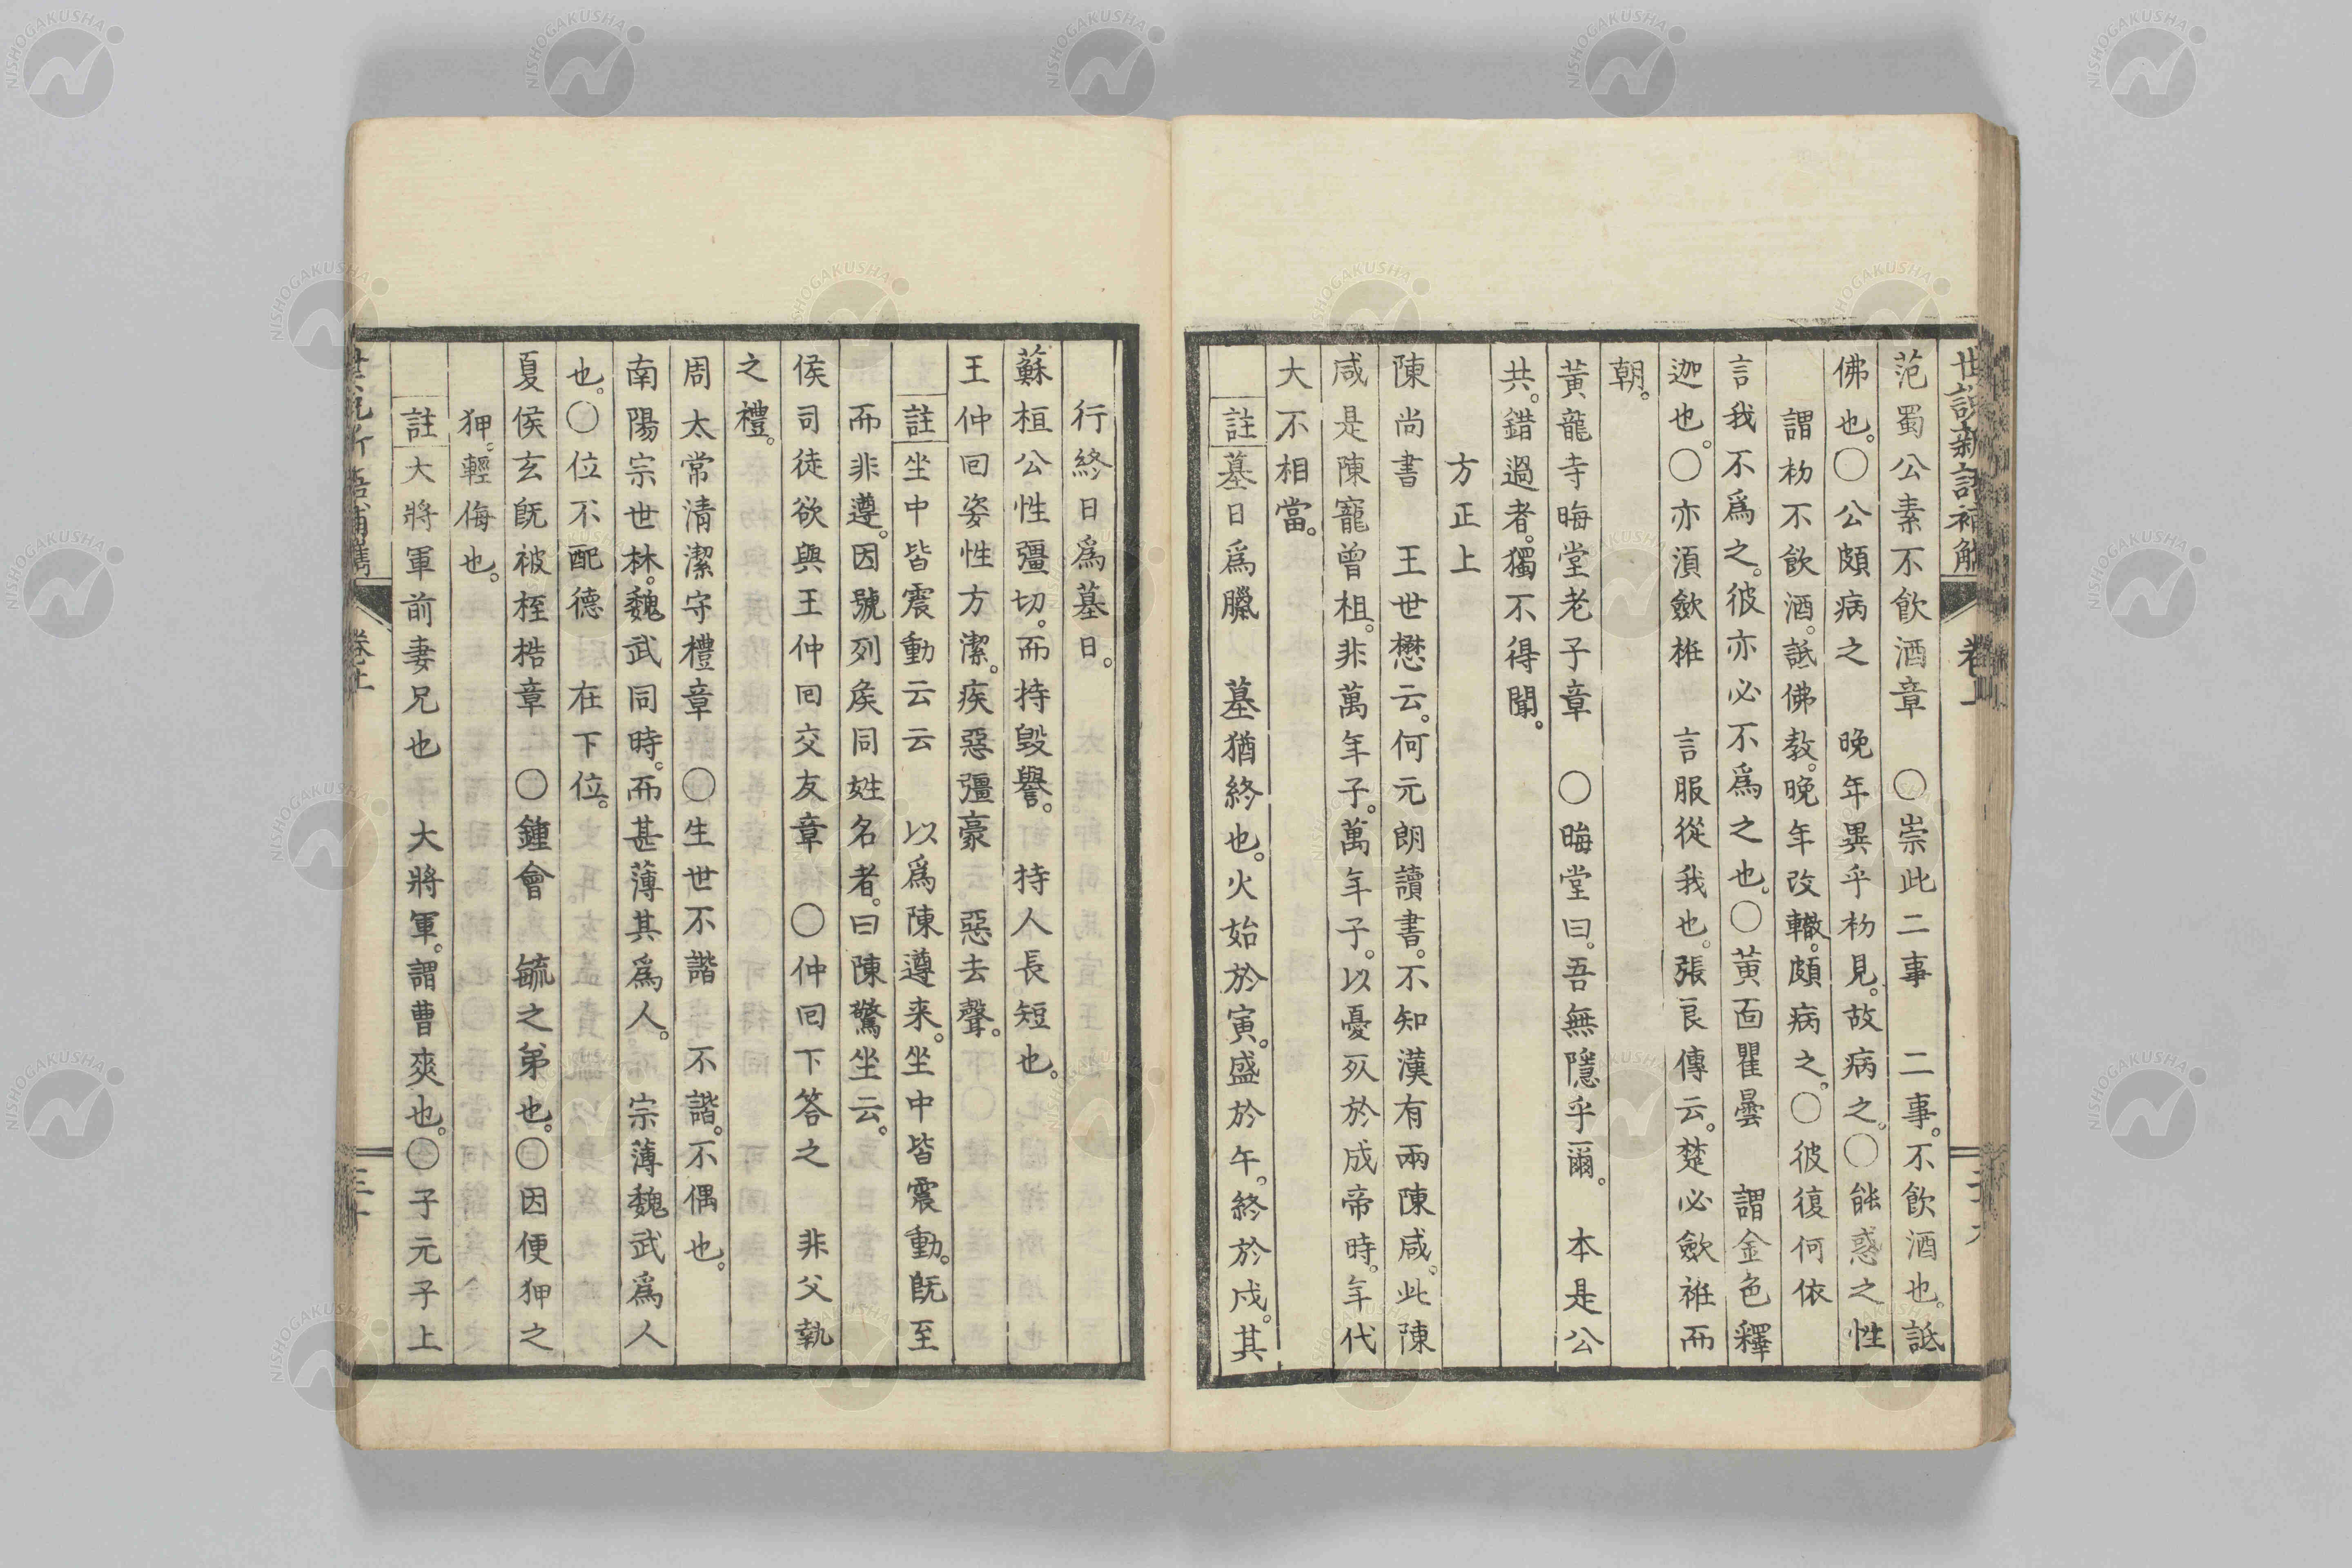 世說新語補觽 卷上
范蜀公素不飲酒章 〇崇此二事 二事。不飲酒也。詆
佛也。〇公頗病之 晚年異乎初見。故病之。〇能惑之性
謂初不飲酒。詆佛教。晚年改轍。頗病之。〇彼復何依
言我不爲之。彼亦必不爲之也。〇黃面瞿曇 謂金色釋
迦也。〇亦湏斂袵 言服從我也。張良傳云。楚必斂袵而
朝。
黃龍寺晦堂老子章 〇晦堂曰。吾無隱乎爾。 本是公
共。錯過者。獨不得聞。
方正上
陳尚書 王世懋云。何元朗讀書。不知漢有兩陳咸。此陳
咸是陳寵曾祖。非萬年子。萬年子。以憂死於成帝時。年代
大不相當。
註墓日爲臘 墓猶終也。火始於寅。盛於午。終於戌。其
行終日爲墓日。
蘇桓公性彊切。而持毀譽。 持人長短也。
王仲回姿性方潔。疾惡彊豪 惡去聲。
註坐中皆震動云云 以爲陳遵来。坐中皆震動。旣至
而非遵。因號列矦同姓名者。曰陳驚坐云。
侯司徒欲與王仲回交友章 〇仲回下答之 非父執
之禮。
周太常清潔守禮章 〇生世不諧 不諧。不偶也。
南陽宗世林。魏武同時。而甚薄其爲人。 宗薄魏武爲人
也。〇位不配德 在下位。
夏侯玄旣被桎梏章 〇鍾會 毓之弟也。〇因便狎之
狎。輕侮也。
註大將軍前妻兄也 大將軍。謂曹爽也。〇子元子上
卷上